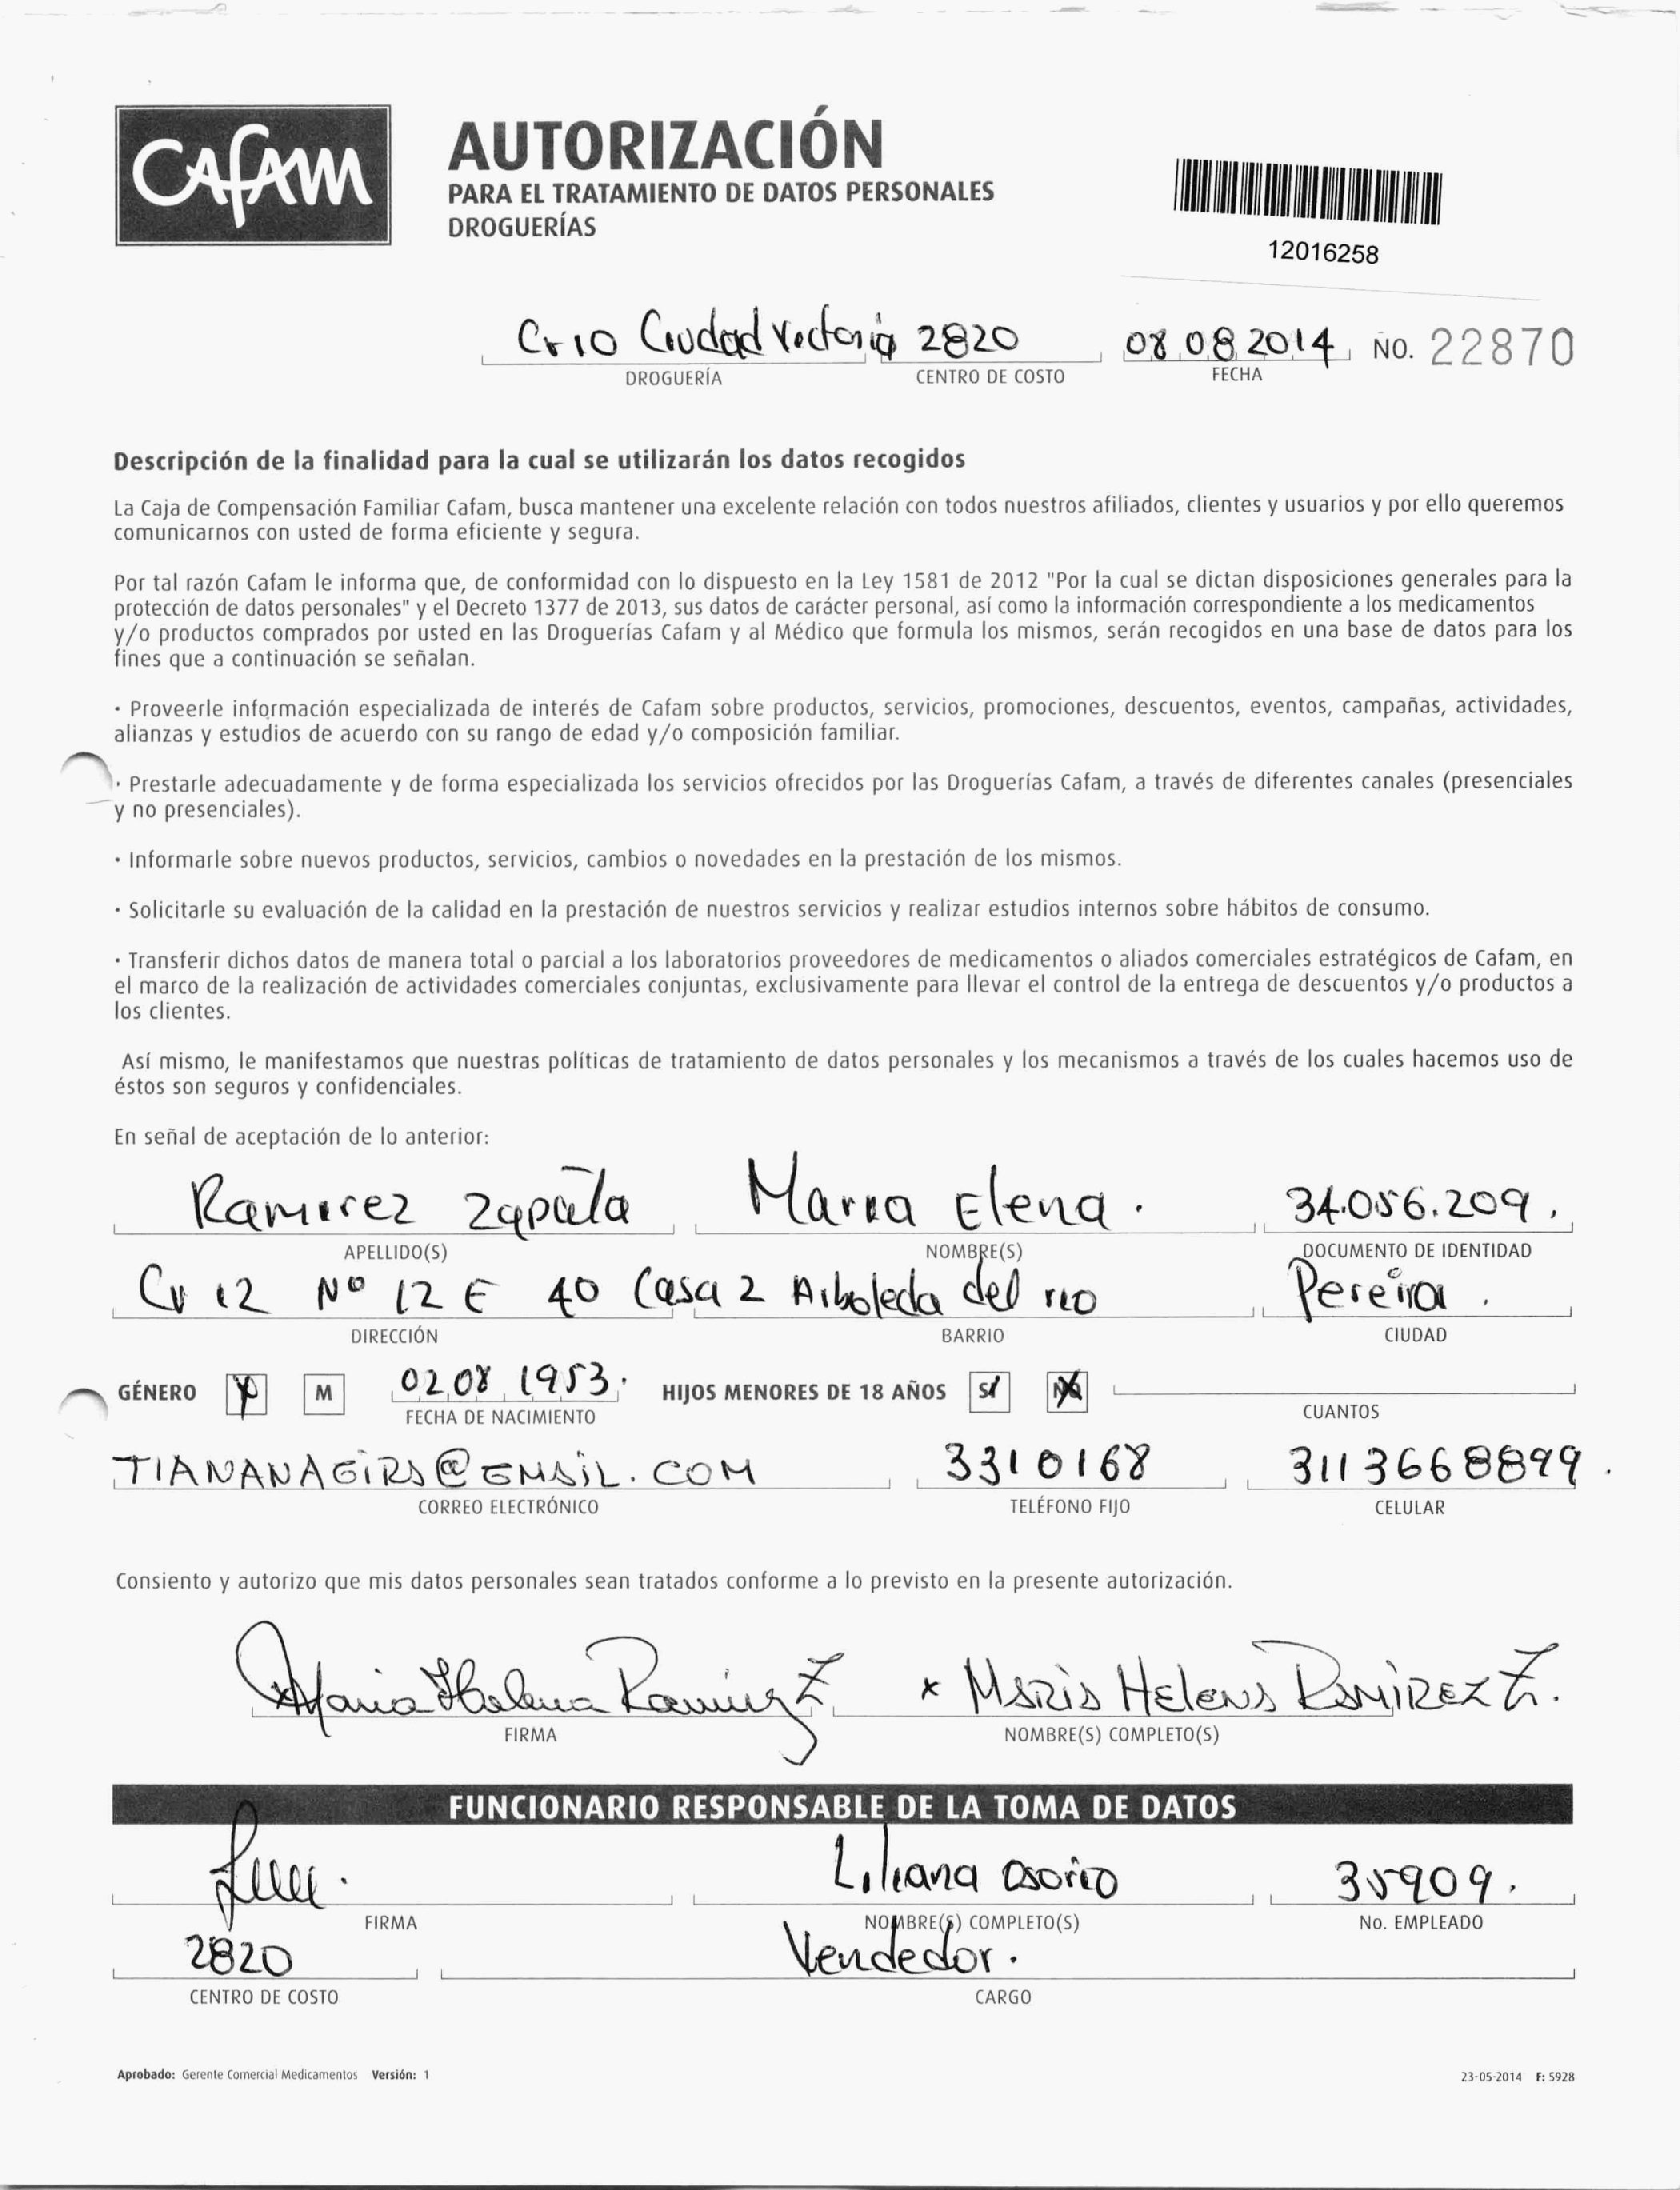 Cafam
AUTORIZACIÓN
PARA EL TRATAMIENTO DE DATOS PERSONALES
DROGUERÍAS
12016258
Cr 10 Ciudad Victoria 2820 08 08 2014 NO. 22870
DROGUERÍA CENTRO DE COSTO FECHA
Descripción de la finalidad para la cual se utilizarán los datos recogidos
La Caja de Compensación Familiar Cafam, busca mantener una excelente relación con todos nuestros afiliados, clientes y usuarios y por ello queremos
comunicarnos con usted de forma eficiente y segura.
Por tal razón Cafam le informa que, de conformidad con lo dispuesto en la Ley 1581 de 2012 "Por la cual se dictan disposiciones generales para la
protección de datos personales" y el Decreto 1377 de 2013, sus datos de carácter personal, así como la información correspondiente a los medicamentos
y/o productos comprados por usted en las Droguerías Cafam y al Médico que formula los mismos, serán recogidos en una base de datos para los
fines que a continuación se señalan.
· Proveerle información especializada de interés de Cafam sobre productos, servicios, promociones, descuentos, eventos, campañas, actividades,
alianzas y estudios de acuerdo con su rango de edad y/o composición familiar.
· Prestarle adecuadamente y de forma especializada los servicios ofrecidos por las Droguerías Cafam, a través de diferentes canales (presenciales
y no presenciales).
· Informarle sobre nuevos productos, servicios, cambios o novedades en la prestación de los mismos.
· Solicitarle su evaluación de la calidad en la prestación de nuestros servicios y realizar estudios internos sobre hábitos de consumo.
· Transferir dichos datos de manera total o parcial a los laboratorios proveedores de medicamentos o aliados comerciales estratégicos de Cafam, en
el marco de la realización de actividades comerciales conjuntas, exclusivamente para llevar el control de la entrega de descuentos y/o productos a
los clientes.
Así mismo, le manifestamos que nuestras políticas de tratamiento de datos personales y los mecanismos a través de los cuales hacemos uso de
éstos son seguros y confidenciales.
En señal de aceptación de lo anterior:
Ramirez Zapata Maria Elena. 34.056.209.
APELLIDO(S) NOMBRE(S) DOCUMENTO DE IDENTIDAD
Cr 12 Nº 12 E 40 Casa 2 Arboleda del rio Pereira.
DIRECCIÓN BARRIO CIUDAD
GÉNERO M 02 08 1953. HIJOS MENORES DE 18 AÑOS SI NO
FECHA DE NACIMIENTO CUANTOS
TIANANAGIRS@GMAIL.COM 3310168 3113668899.
CORREO ELECTRÓNICO TELÉFONO FIJO CELULAR
Consiento y autorizo que mis datos personales sean tratados conforme a lo previsto en la presente autorización.
x Maria Helena Ramirez Z x MARIA HELENA RAMIREZ Z.
FIRMA NOMBRE(S) COMPLETO(S)
FUNCIONARIO RESPONSABLE DE LA TOMA DE DATOS
Liliana Osorio 35909.
FIRMA NOMBRE(S) COMPLETO(S) No. EMPLEADO
2820 Vendedor.
CENTRO DE COSTO CARGO
Aprobado: Gerente Comercial Medicamentos Versión: 1 23-05-2014 F: 5928